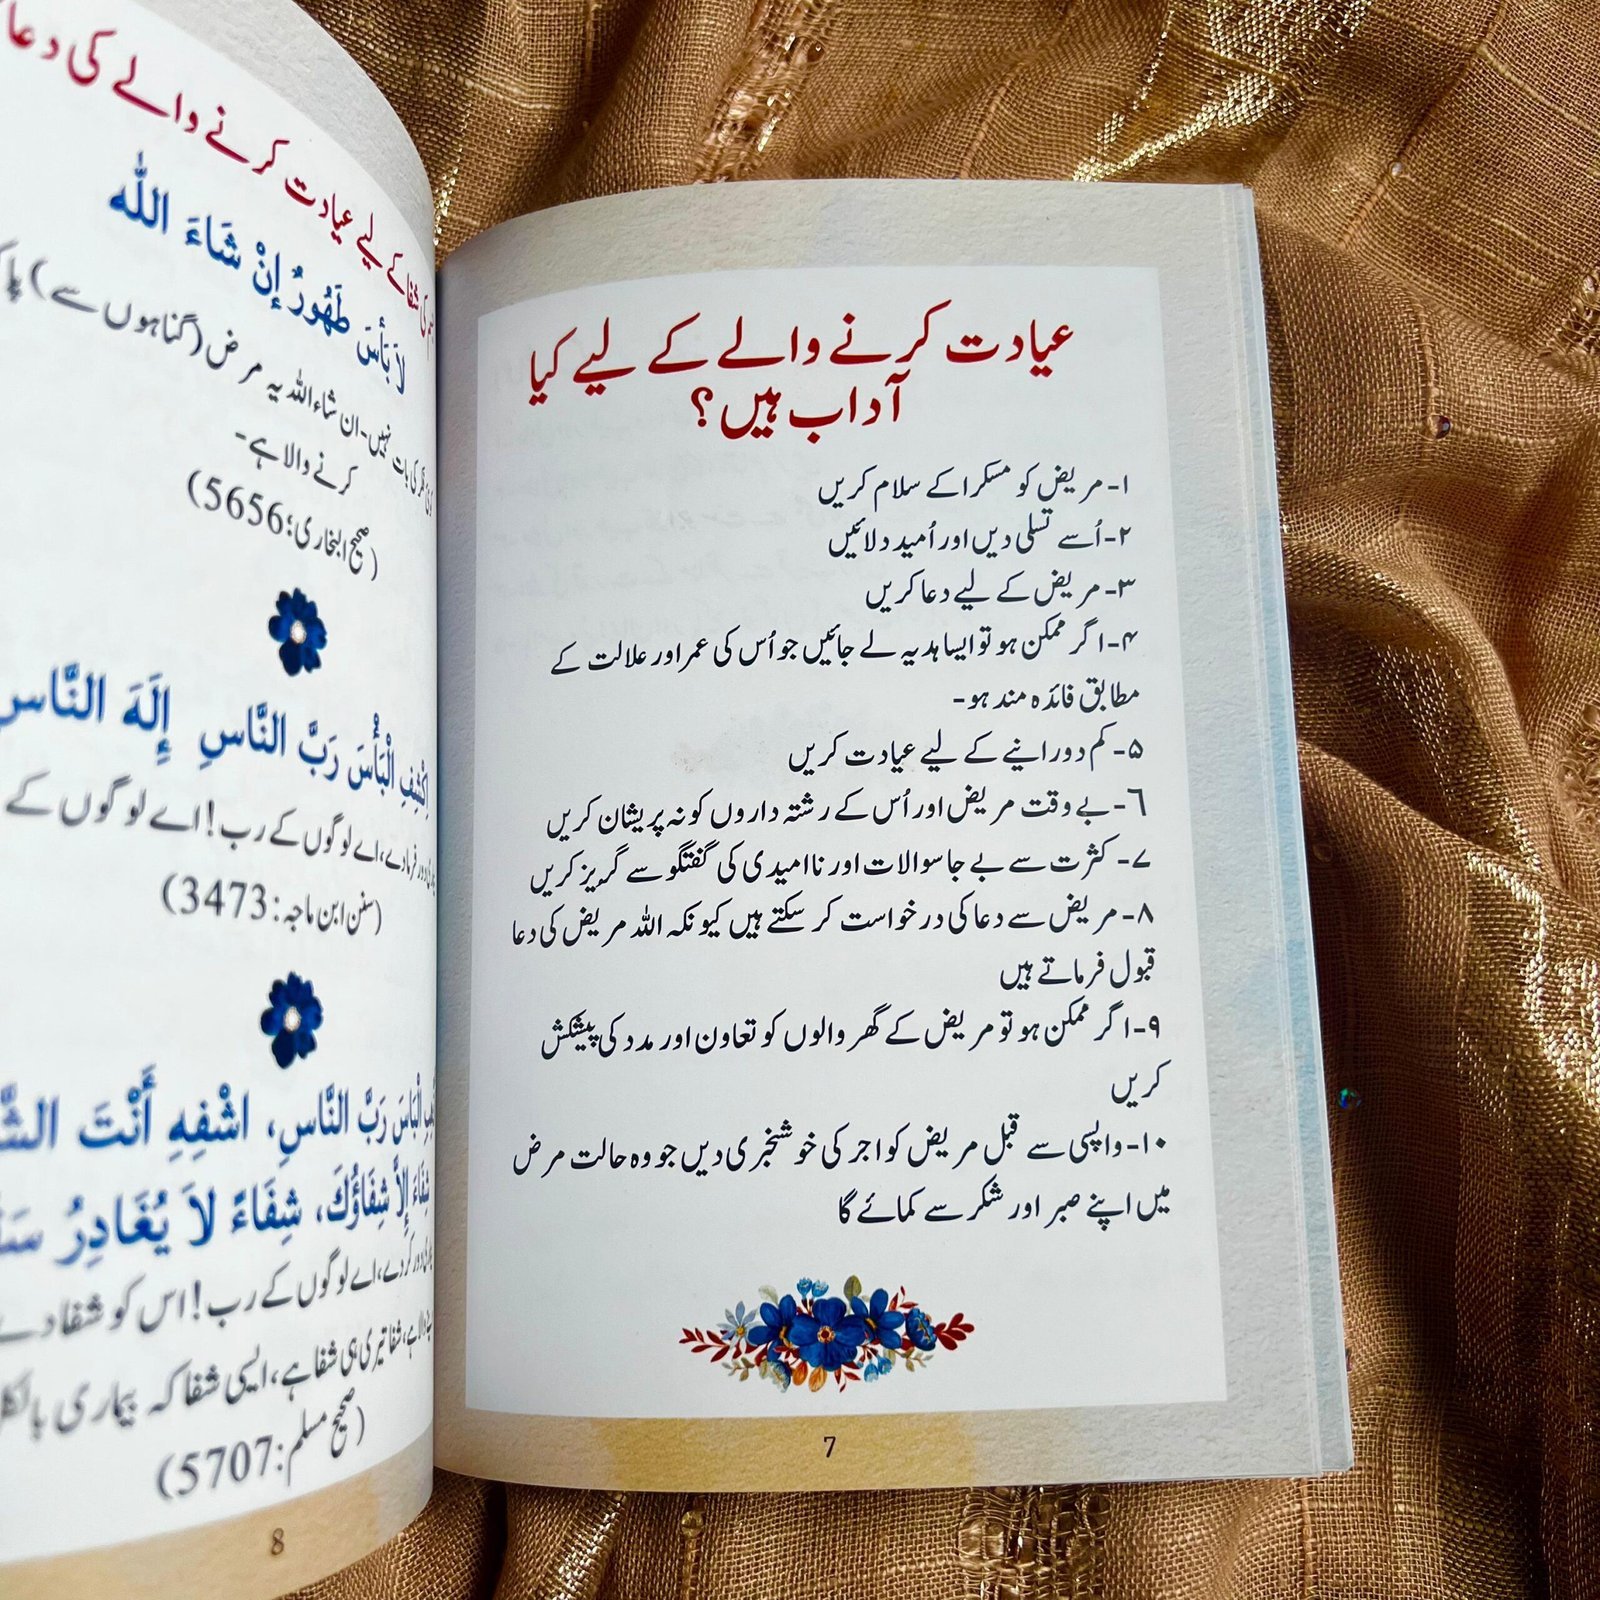 عیادت کرنے والے کے لیے کیا
آداب ہیں؟
۱- مریض کو مسکرا کے سلام کریں
۲- اُسے تسلی دیں اور اُمید دلائیں
۳- مریض کے لیے دعا کریں
۴- اگر ممکن ہو تو ایسا ہدیہ لے جائیں جو اُس کی عمر اور علالت کے
مطابق فائدہ مند ہو-
۵- کم دورانیے کے لیے عیادت کریں
٦- بے وقت مریض اور اُس کے رشتہ داروں کو نہ پریشان کریں
۷- کثرت سے بے جا سوالات اور ناامیدی کی گفتگو سے گریز کریں
۸- مریض سے دعا کی درخواست کر سکتے ہیں کیونکہ اللہ مریض کی دعا
قبول فرماتے ہیں
۹- اگر ممکن ہو تو مریض کے گھر والوں کو تعاون اور مدد کی پیشکش
کریں
۱۰- واپسی سے قبل مریض کو اجر کی خوشخبری دیں جو وہ حالت مرض
میں اپنے صبر اور شکر سے کمائے گا
7
کی شفا کے لیے عیادت کرنے والے کی دعا
لاَ بَأْسَ طَهُورٌ إِنْ شَاءَ اللّٰه
کی بات نہیں- ان شاء اللہ یہ مرض (گناہوں سے) پاک
کرنے والا ہے-
(صحیح البخاری؛ 5656)
اِكْشِفِ الْبَأْسَ رَبَّ النَّاسِ إِلَهَ النَّاسِ
فرما دے، اے لوگوں کے رب! اے لوگوں کے
(سنن ابن ماجہ: 3473)
الْبَاسَ رَبَّ النَّاسِ، اشْفِهِ أَنْتَ
شِفَاءَ إِلاَّ شِفَاؤُكَ، شِفَاءً لاَ يُغَادِرُ
دور کر دے، اے لوگوں کے رب! اس کو شفا دے
شفا تیری ہی شفا ہے، ایسی شفا کہ بیماری بالکل
(صحیح مسلم: 5707)
8